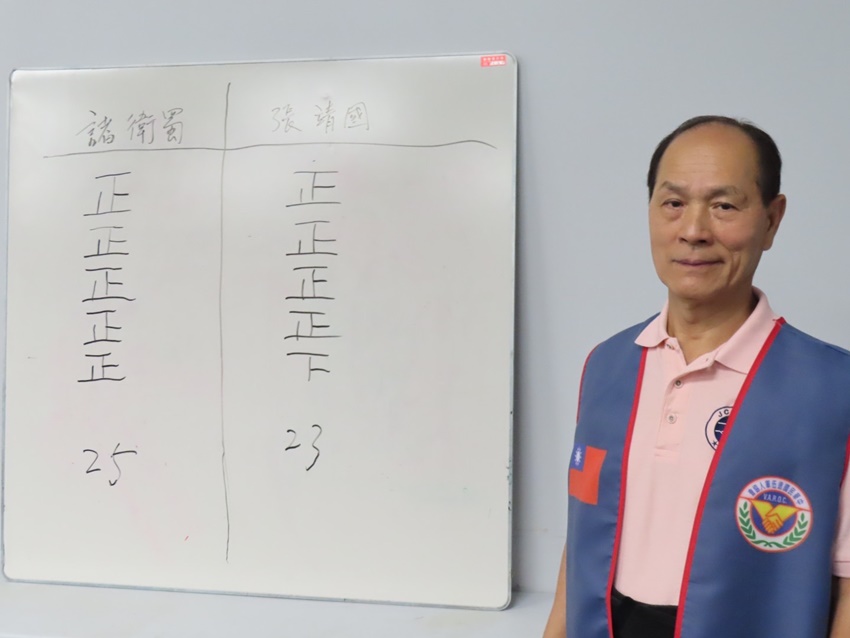 諸衛蜀 張靖國
正 正
正 正
正 正
正 正
正 下
25 23
V.A.R.O.C.